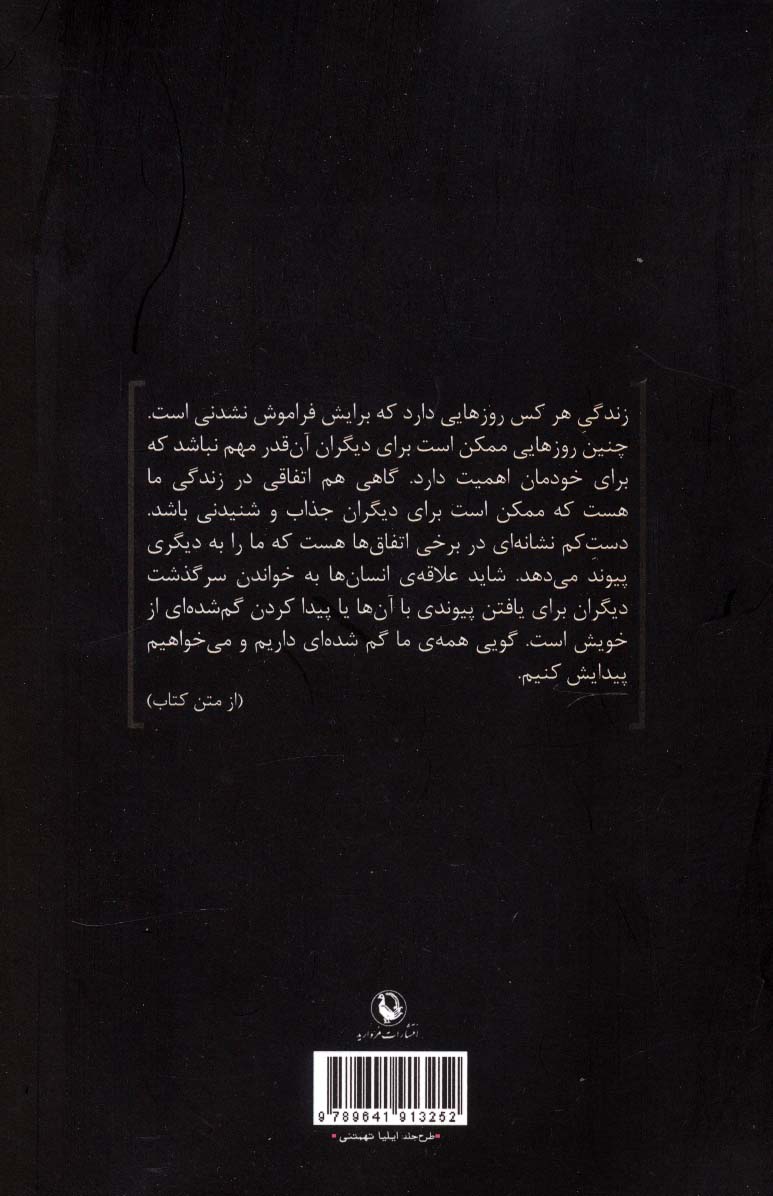 زندگیِ هر کس روزهایی دارد که برایش فراموش نشدنی است.
چنین روزهایی ممکن است برای دیگران آن‌قدر مهم نباشد که
برای خودمان اهمیت دارد. گاهی هم اتفاقی در زندگی ما
هست که ممکن است برای دیگران جذاب و شنیدنی باشد.
دستِ‌کم نشانه‌ای در برخی اتفاق‌ها هست که ما را به دیگری
پیوند می‌دهد. شاید علاقه‌ی انسان‌ها به خواندن سرگذشت
دیگران برای یافتن پیوندی با آن‌ها یا پیدا کردن گم‌شده‌ای از
خویش است. گویی همه‌ی ما گم شده‌ای داریم و می‌خواهیم
پیدایش کنیم.
(از متن کتاب)
انتشارات مروارید
9 789641 913252
طرح‌جلد ایلیا تهمتنی